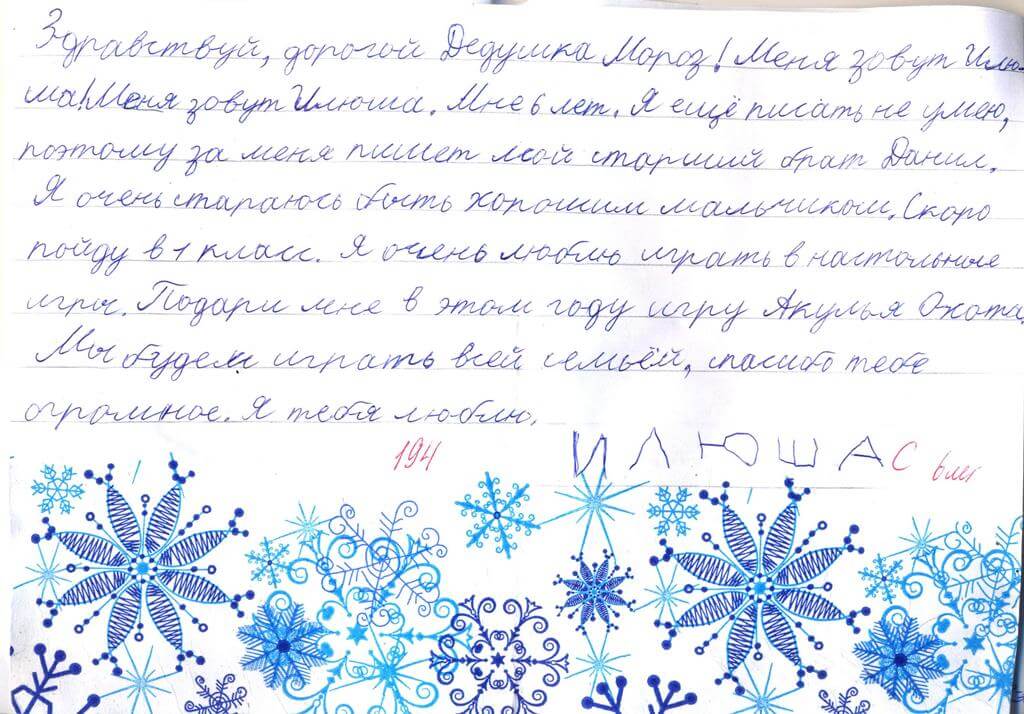 Здравствуй, дорогой Дедушка Мороз! Меня зовут Илю-
ша! Меня зовут Илюша. Мне 6 лет. Я ещё писать не умею,
поэтому за меня пишет мой старший брат Данил.
Я очень стараюсь быть хорошим мальчиком. Скоро
пойду в 1 класс. Я очень люблю играть в настольные
игры. Подари мне в этом году игру Акулья Охота.
Мы будем играть всей семьёй, спасибо тебе
огромное. Я тебя люблю.
194 ИЛЮША С 6 лет